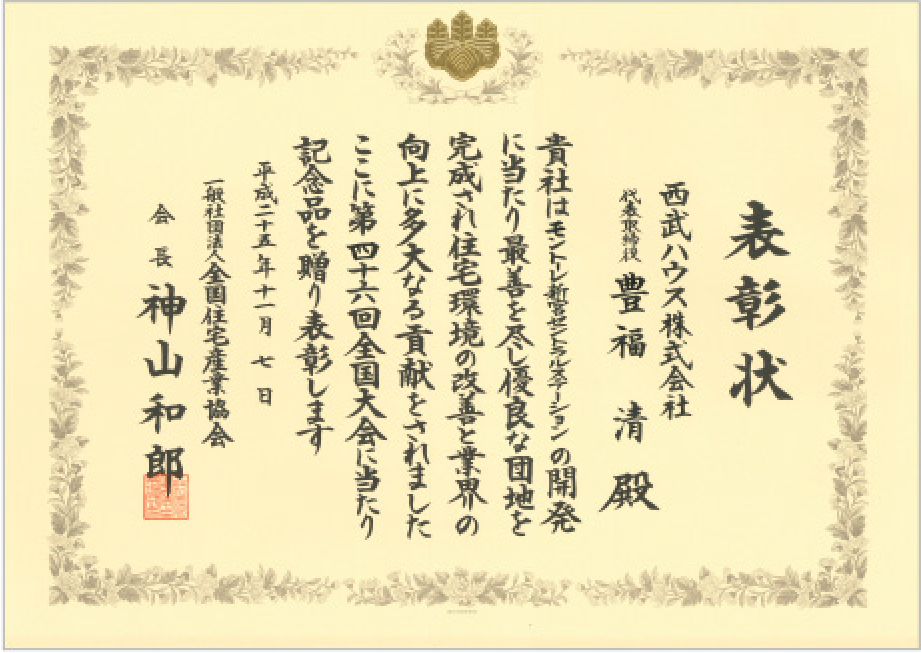 表彰状
西武ハウス株式会社
代表取締役 豊福 清 殿
貴社はモントーレ新宮セントラルステーションの開発
に当たり最善を尽し優良な団地を
完成され住宅環境の改善と業界の
向上に多大なる貢献をされました
ここに第四十六回全国大会に当たり
記念品を贈り表彰します
平成二十五年十一月 七 日
一般社団法人全国住宅産業協会
会 長 神山和郎